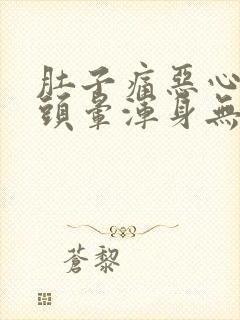 肚子痛惡心
頭暈渾身無
蒼黎